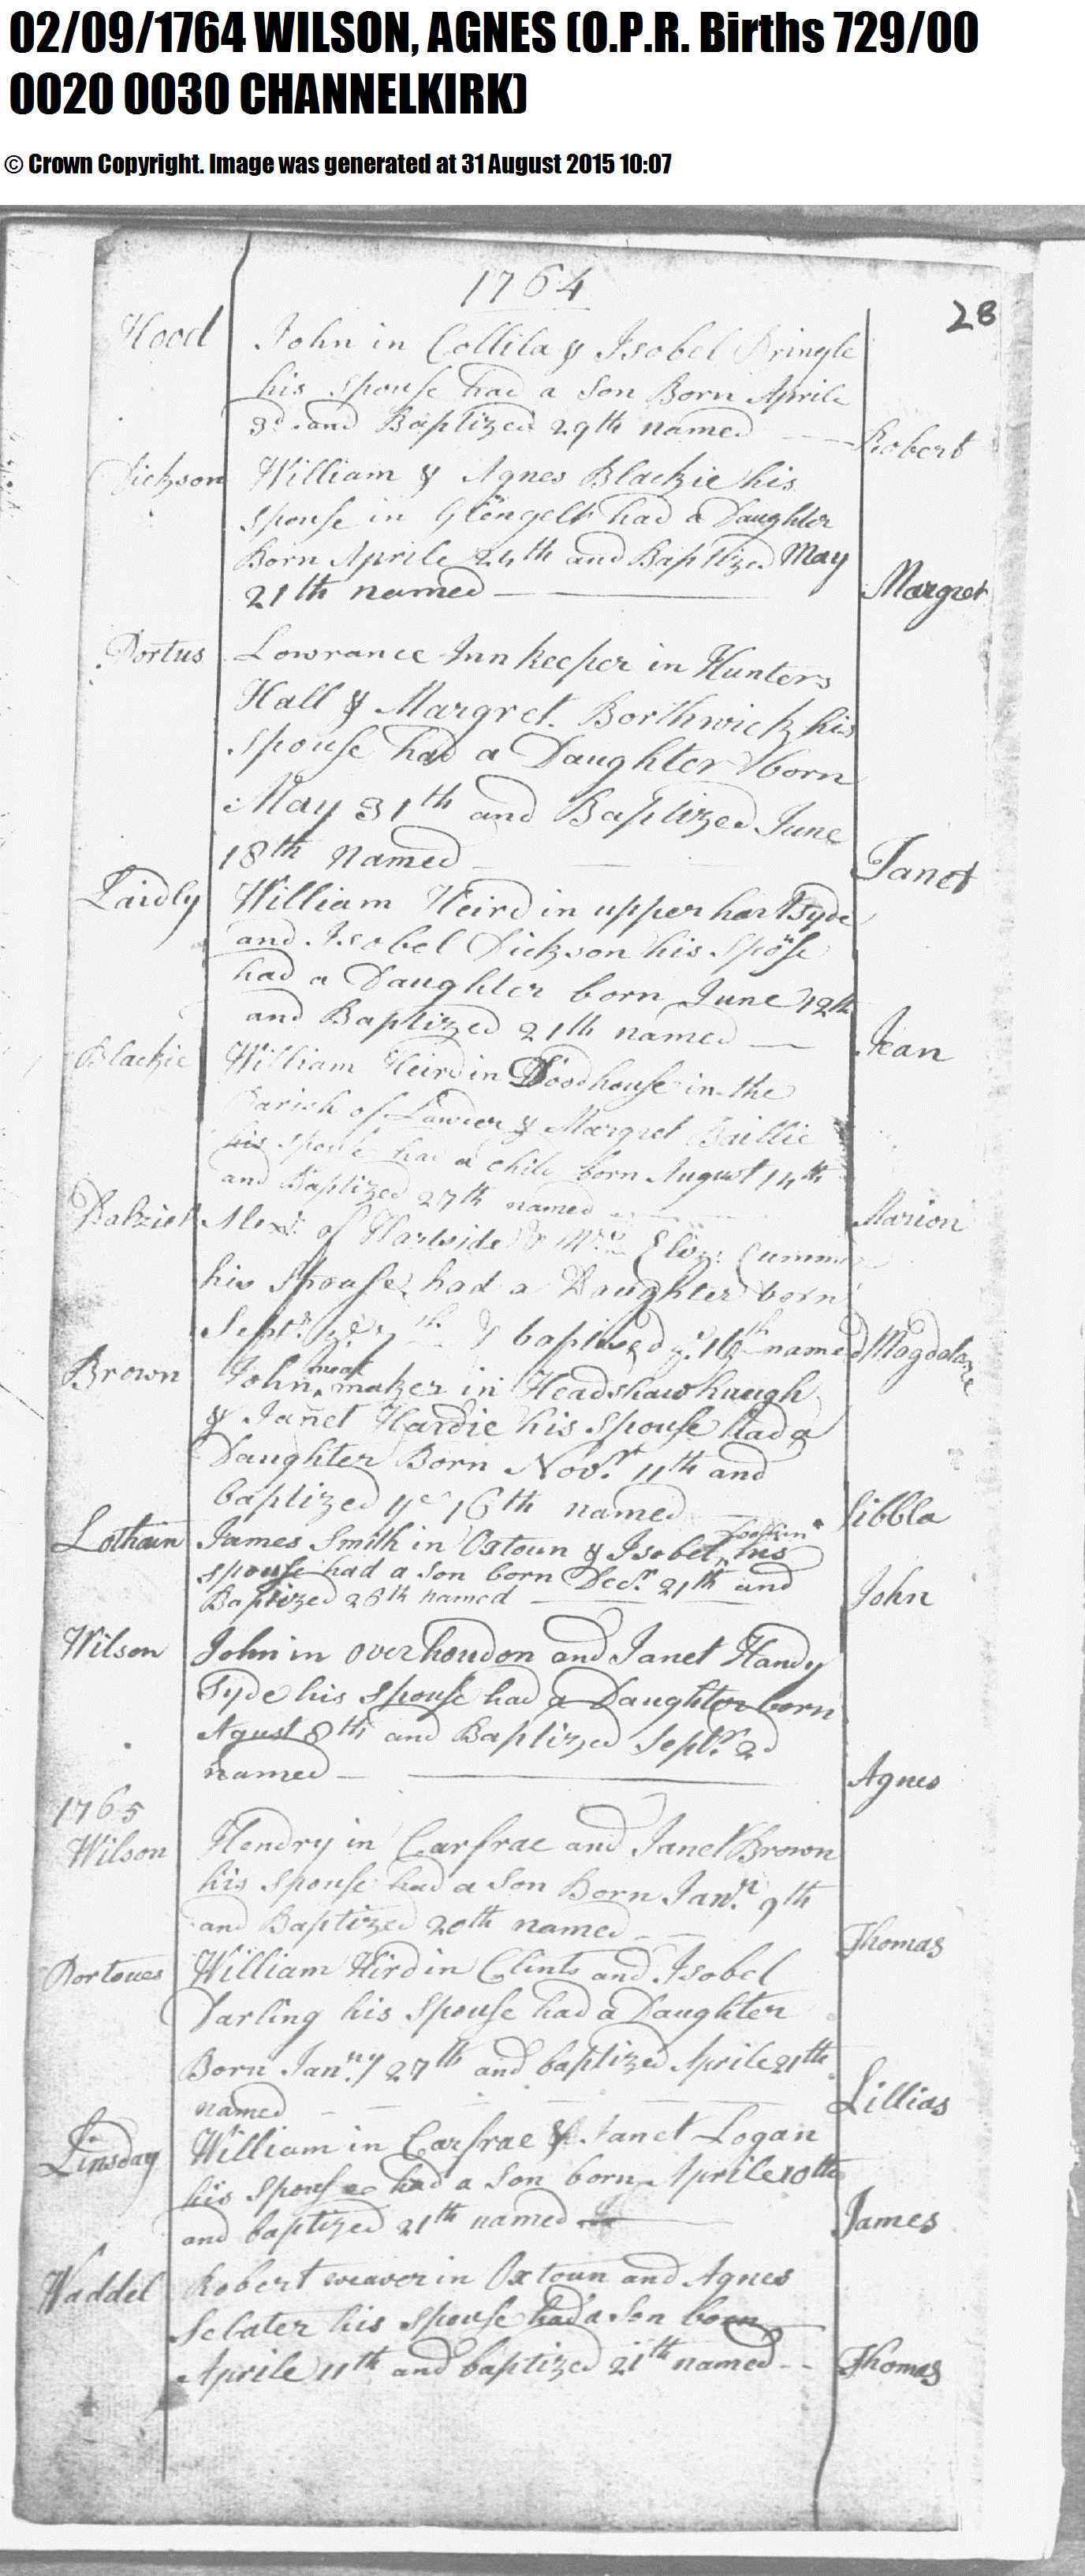 02/09/1764 WILSON, AGNES (O.P.R. Births 729/00
0020 0030 CHANNELKIRK)
© Crown Copyright. Image was generated at 31 August 2015 10:07
1764
28
Hood John in Collila & Isobel Pringle
his spouse had a Son Born Aprile
3d and Baptized 29th named Robert
Dickson William & Agnes Blackie his
Spouse in Glengelt had a Daughter
Born Aprile 24th and Baptized May
21th named Margret
Portus Lowrance Innkeeper in Hunters
Hall & Margret Borthwick his
spouse had a Daughter born
May 31th and Baptized June
18th Named Janet
Laidly William Heird in upper hartsyde
and Isobel Dickson his Spose
had a Daughter born June 12th
and Baptized 21th named Jean
Blackie William Heird in Woodhouse in the
Parish of Lawder & Margret Baillie
his spouse had a child born August 14th
and Baptized 27th named Marion
Dalziel Alexr. of Hartside & Mrs. Eliz:
his Spouse had a Daughter born
Septr. & baptised ye 16th named Magdalane
Brown John meal maker in Headshawhaugh
& Janet Hardie his spouse had a
Daughter Born Novr. 11th and
baptized ye 16th named Sibbla
Lothain James Smith in Oxtoun & Isobel his
spouse had a son born Decr. 21th and
Baptized 26th named John
Wilson John in over houdon and Janet Handy
Syde his spouse had a Daughter born
Agust 8th and Baptized Septr. 2d
named Agnes
1765
Wilson Hendry in Carfrae and Janet Brown
his spouse had a Son Born Janr. 9th
and Baptized 20th named Thomas
Portoues William Hird in Clints and Isobel
Darling his Spouse had a Daughter
Born Janny 27th and baptized Aprile 21th
named Lillias
Linsday William in Carfrae & Janet Logan
his spouse had a Son born Aprile 10th
and baptized 21th named James
Waddel Robert weaver in Oxtoun and Agnes
Sclater his spouse had a Son born
Aprile 11th and baptized 21th named Thomas